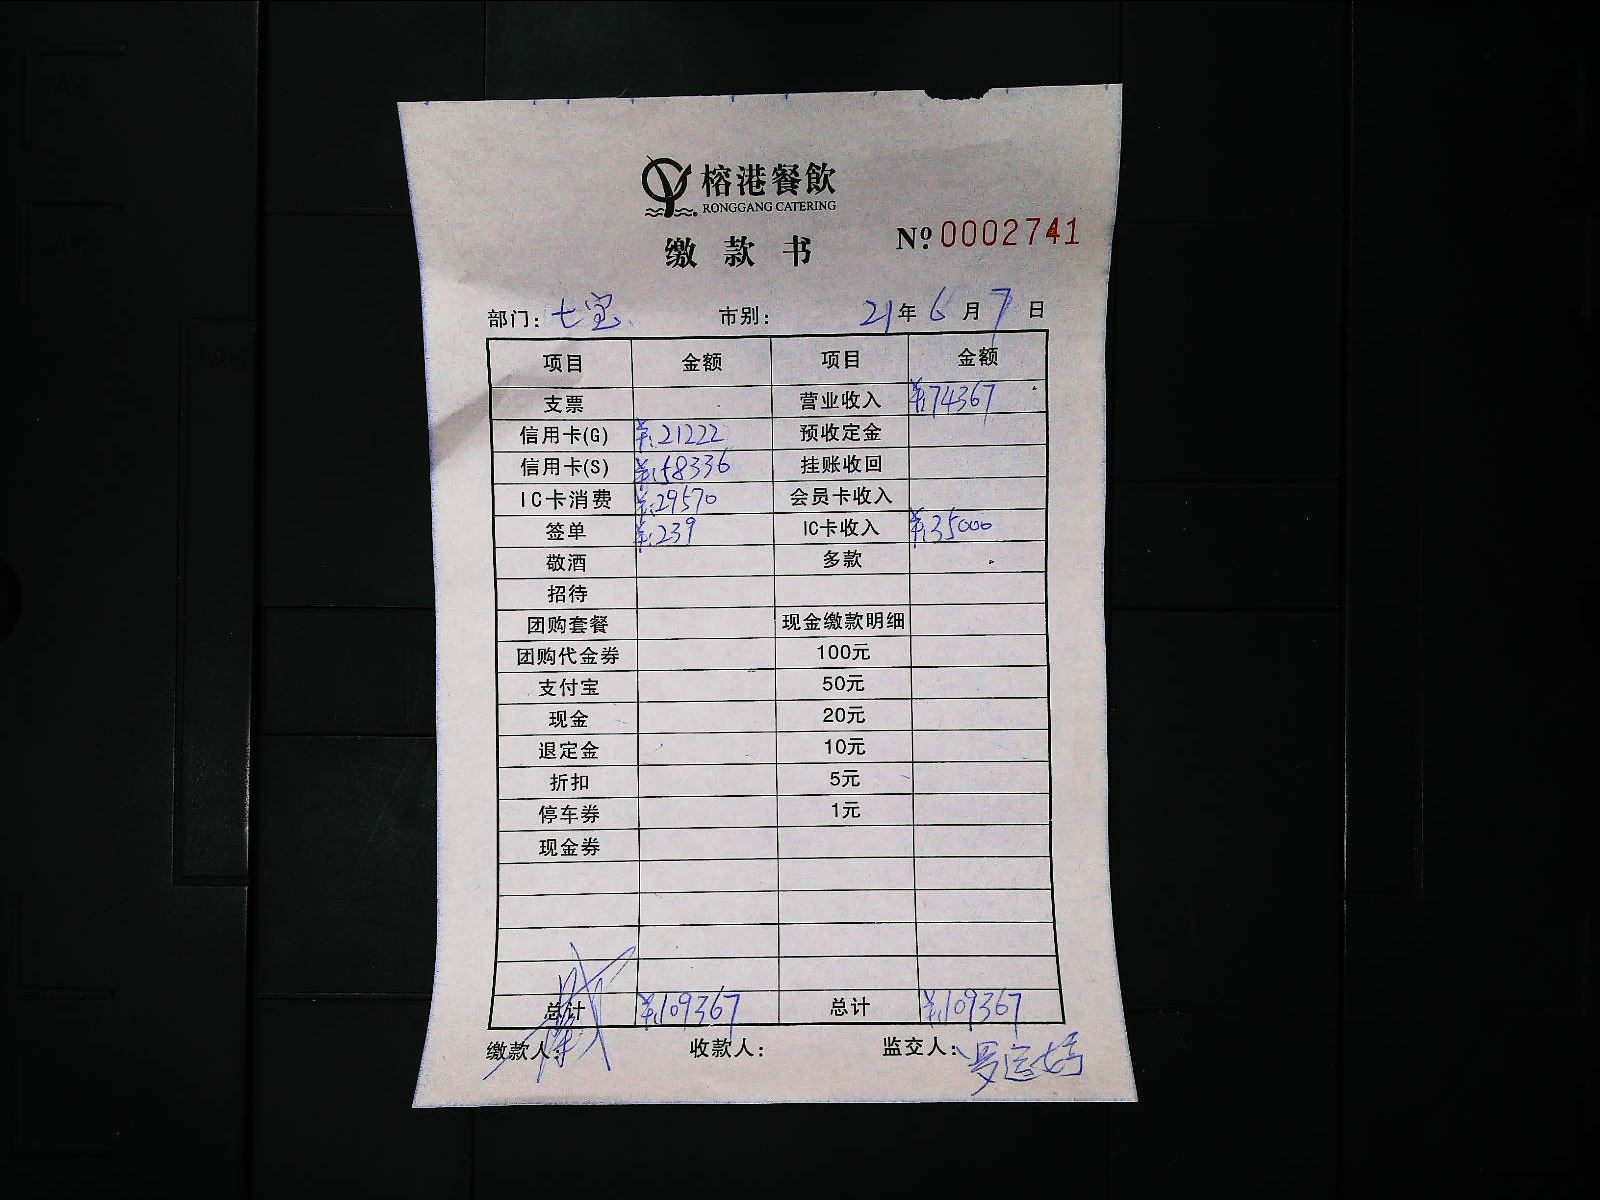 榕港餐飲
RONGGANG CATERING
缴款书
№ 0002741
部门: 七宝 市别: 21年6月7日
项目 金额 项目 金额
支票 营业收入 ¥:74367
信用卡(G) ¥:21222 预收定金
信用卡(S) ¥:58336 挂账收回
IC卡消费 ¥:29570 会员卡收入
签单 ¥:239 IC卡收入 ¥:35000
敬酒 多款
招待
团购套餐 现金缴款明细
团购代金券 100元
支付宝 50元
现金 20元
退定金 10元
折扣 5元
停车券 1元
现金券
总计 ¥:109367 总计 ¥:109367
缴款人: 收款人: 监交人: